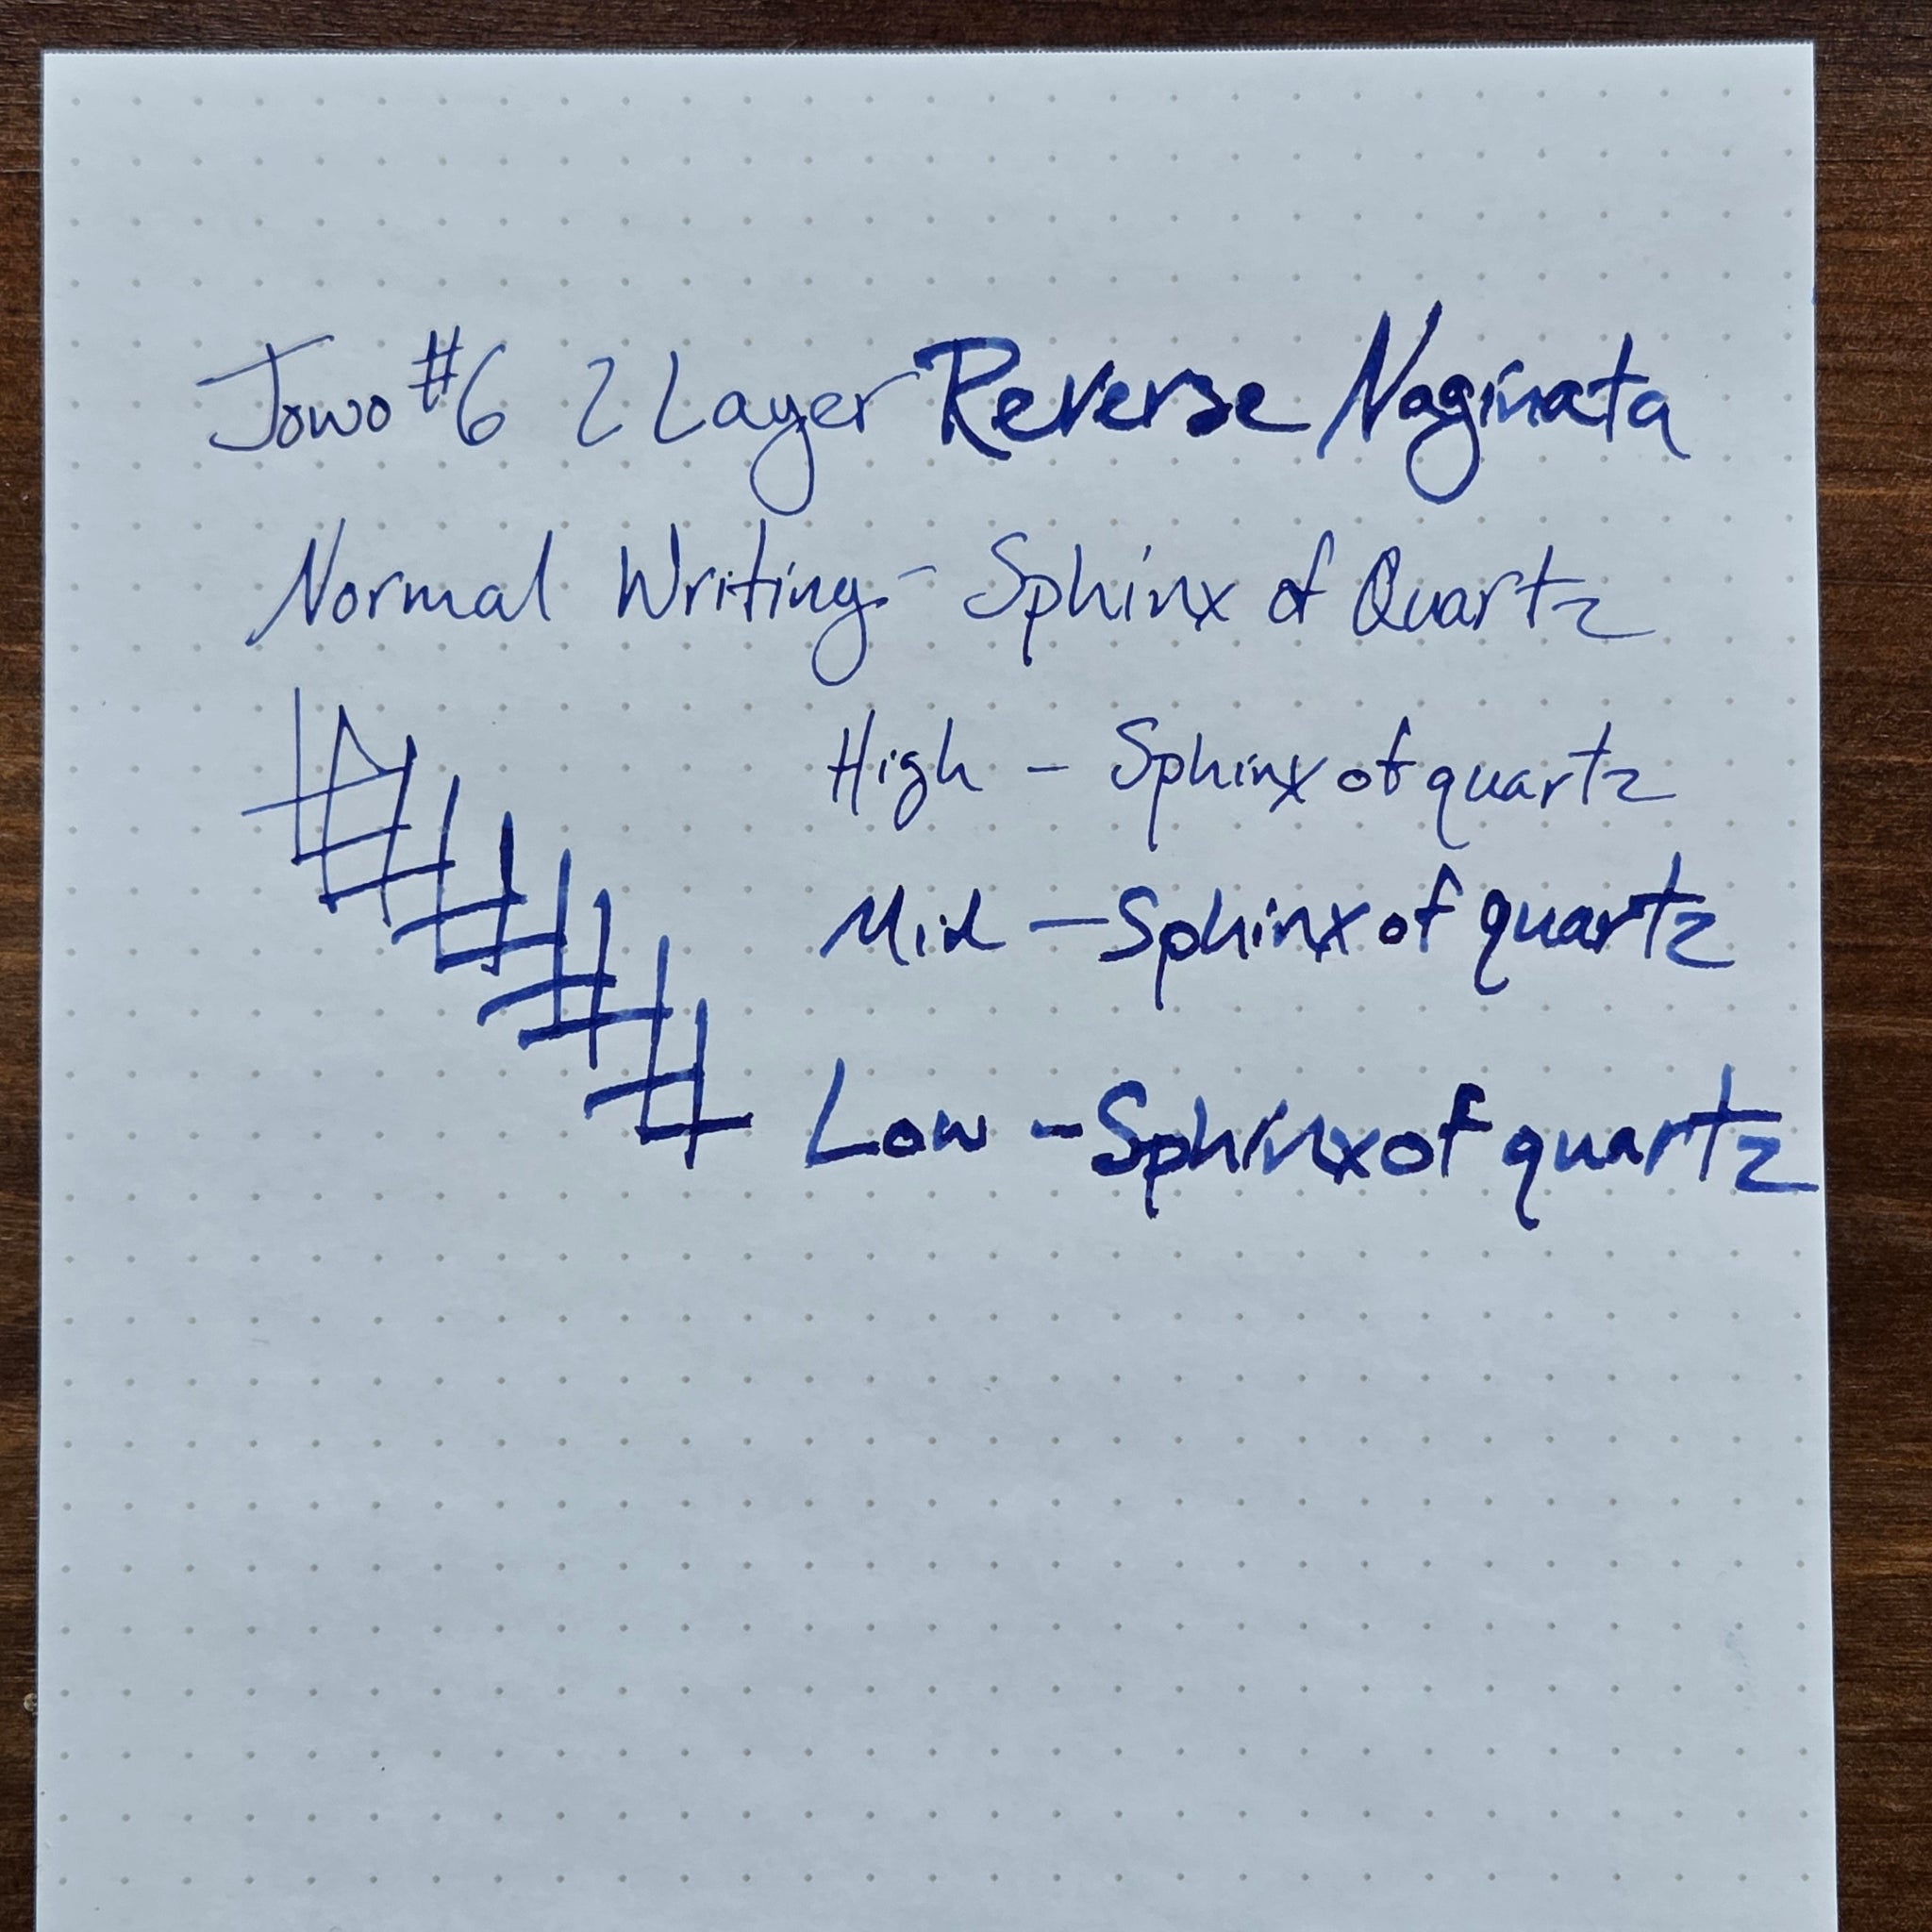 Jowo #6 2 Layer Reverse Naginata
Normal Writing - Sphinx of Quartz
High - Sphinx of quartz
Mid - Sphinx of quartz
Low - Sphinx of quartz